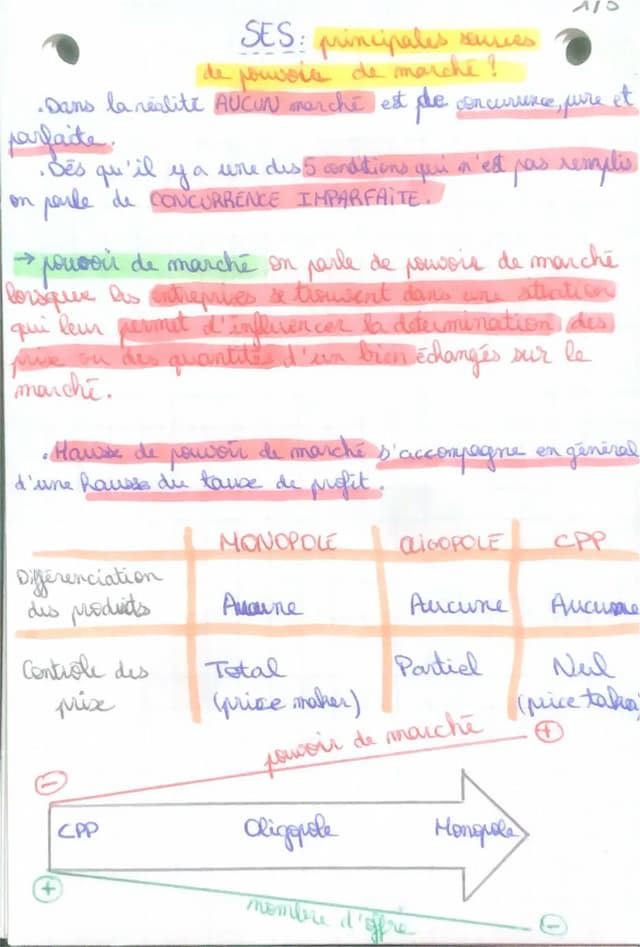 1/5
SES: principales sources
de pouvoir de marché !
. Dans la réalité AUCUN marché est de concurrence, pure et
parfaite.
. Dés qu'il y a une des 5 conditions qui n'est pas remplis
on parle de CONCURRENCE IMPARFAITE.
→ pouvoir de marché on parle de pouvoir de marché
lorsque les entreprises se trouvent dans une situation
qui leur permet d'influencer la détermination des
prix ou des quantités d'un bien échangés sur le
marché.
. Hausse de pouvoir de marché s'accompagne en général
d'une hausse du taux de profit.
MONOPOLE OLIGOPOLE CPP
Différenciation
des produits Aucune Aucune Aucune
Contrôle des Total Partiel Nul
prix (price maker) (price taker)
pouvoir de marché +
-
CPP Oligopole Monopole
+
nombre d'offre -